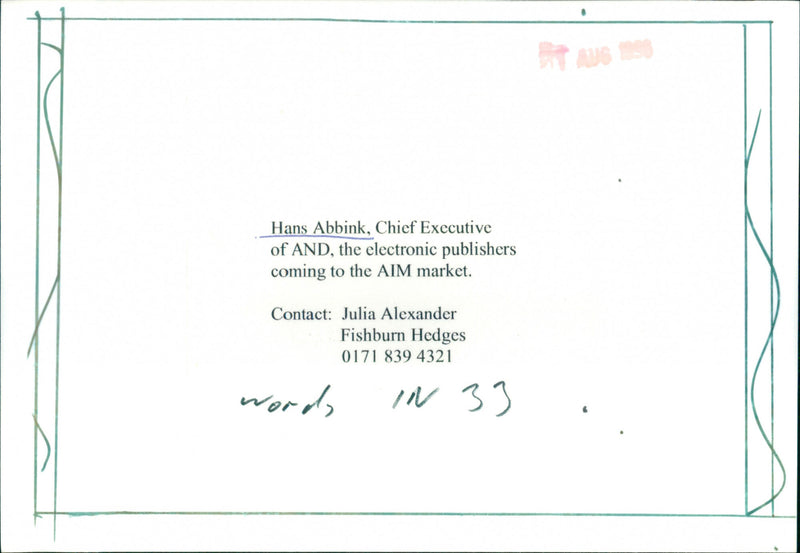 AUG 1996
Hans Abbink, Chief Executive
of AND, the electronic publishers
coming to the AIM market.
Contact: Julia Alexander
Fishburn Hedges
0171 839 4321
words IN 33